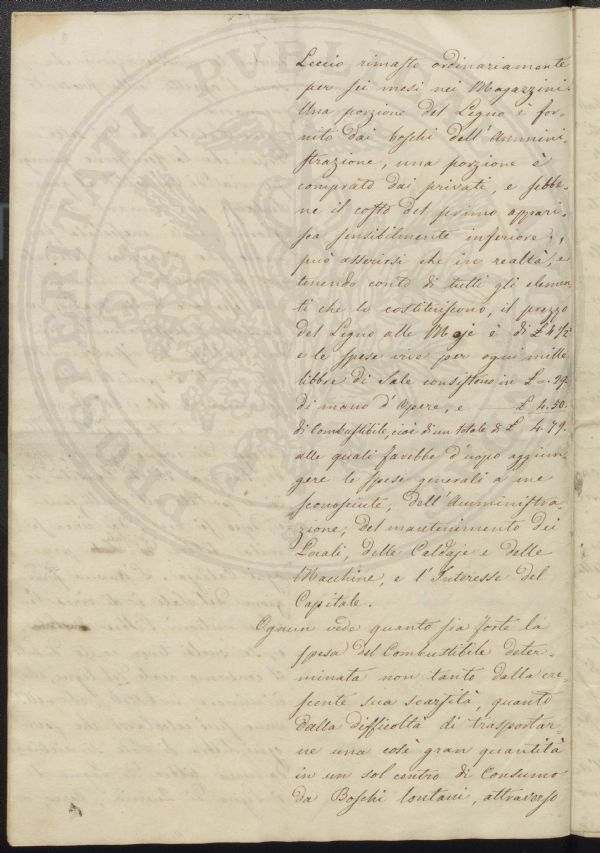 Leccio rimasto ordinariamente
per sei mesi nei Magazzini.
Una porzione del Legno è for-
nito dai boschi dell'Ammini-
strazione, una porzione è
comprato dai privati, e sebbe-
ne il costo del primo appari-
sca sensibilmente inferiore,
può asserirsi che in realtà, e
tenendo conto di tutti gli elemen-
ti che lo costituiscono, il prezzo
del Legno alle Moje è di £ 4 1/2
e le spese vive per ogni mille
libbre di Sale consistono in £ -. 29.
di mano d'Opere, e £ 4. 50.
di Combustibile, cioè di un totale di £ 4. 79.
alle quali sarebbe d'uopo aggiun-
gere le spese generali a me
sconosciute, dell'Amministra-
zione, del mantenimento dei
Locali, delle Caldaje e delle
Macchine, e l'Interesse del
Capitale.
Ognun vede quanto sia forte la
spesa del Combustibile deter-
minata non tanto dalla cre-
scente sua scarsità, quanto
dalla difficoltà di trasportar-
ne una così gran quantità
in un sol centro di Consumo
da Boschi lontani, attraverso
PROSPERITATI PUBLI